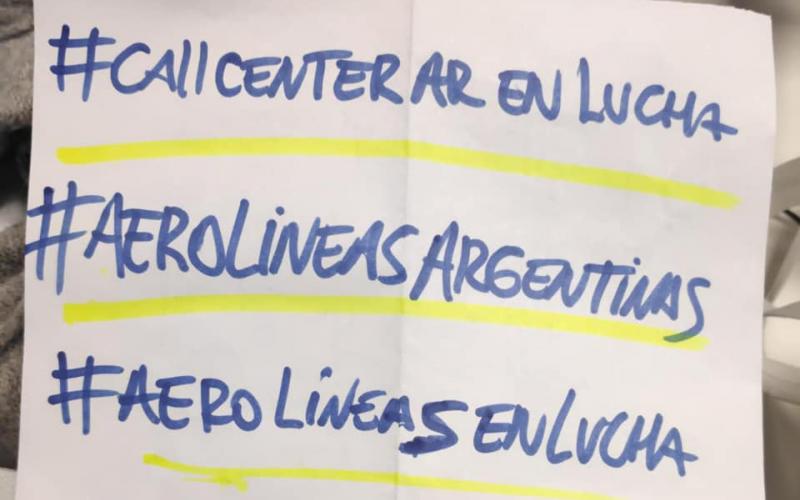 #CAllCENTER AR EN LUCHA
#AEROLiNEAS ARGENTiNAS
#AEROLiNEAS EN LUCHA